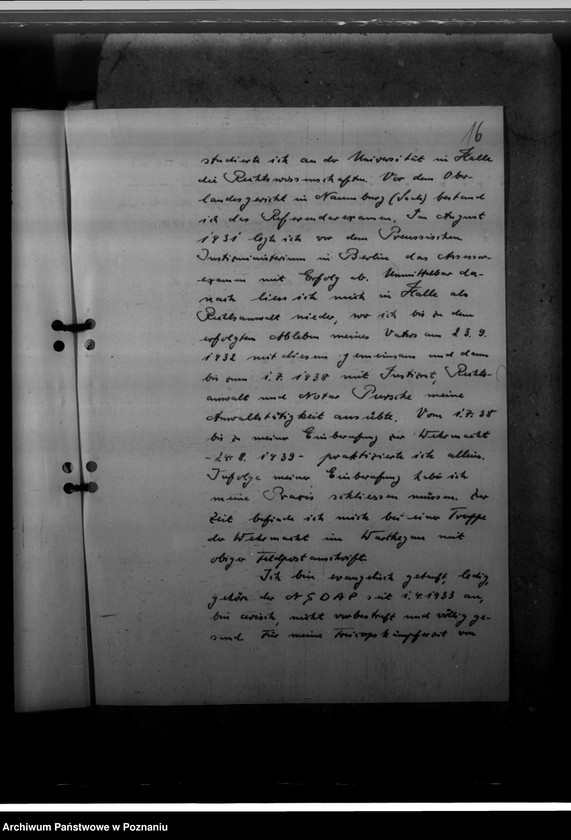 16
studierte ich an der Universität in Halle
die Rechtswissenschaften. Vor dem Ober-
landesgericht in Naumburg (Saale) bestand
ich das Referendarexamen. Im August
1931 legte ich vor dem Preussischen
Justizministerium in Berlin das Assessor-
examen mit Erfolg ab. Unmittelbar da-
nach liess ich mich in Halle als
Rechtsanwalt nieder, wo ich bis zu dem
erfolgten Ableben meines Vaters am 23.9.
1932 mit diesem gemeinsam und dann
bis zum 1.7.1938 mit Justizrat, Rechts-
anwalt und Notar Pursche meine
Anwaltstätigkeit ausübte. Vom 1.7.38
bis zu meiner Einberufung zur Wehrmacht
- 28.8.1939 - praktizierte ich allein.
Infolge meiner Einberufung habe ich
meine Praxis schliessen müssen. Zur
Zeit befinde ich mich bei einer Truppe
der Wehrmacht im Warthegau mit
obiger Feldpostanschrift.
Ich bin evangelisch getauft, ledig,
gehöre der NSDAP seit 1.4.1933 an,
bin arisch, nicht vorbestraft und völlig ge-
sund. Für meine Freicorpskämpferzeit von
Archiwum Państwowe w Poznaniu